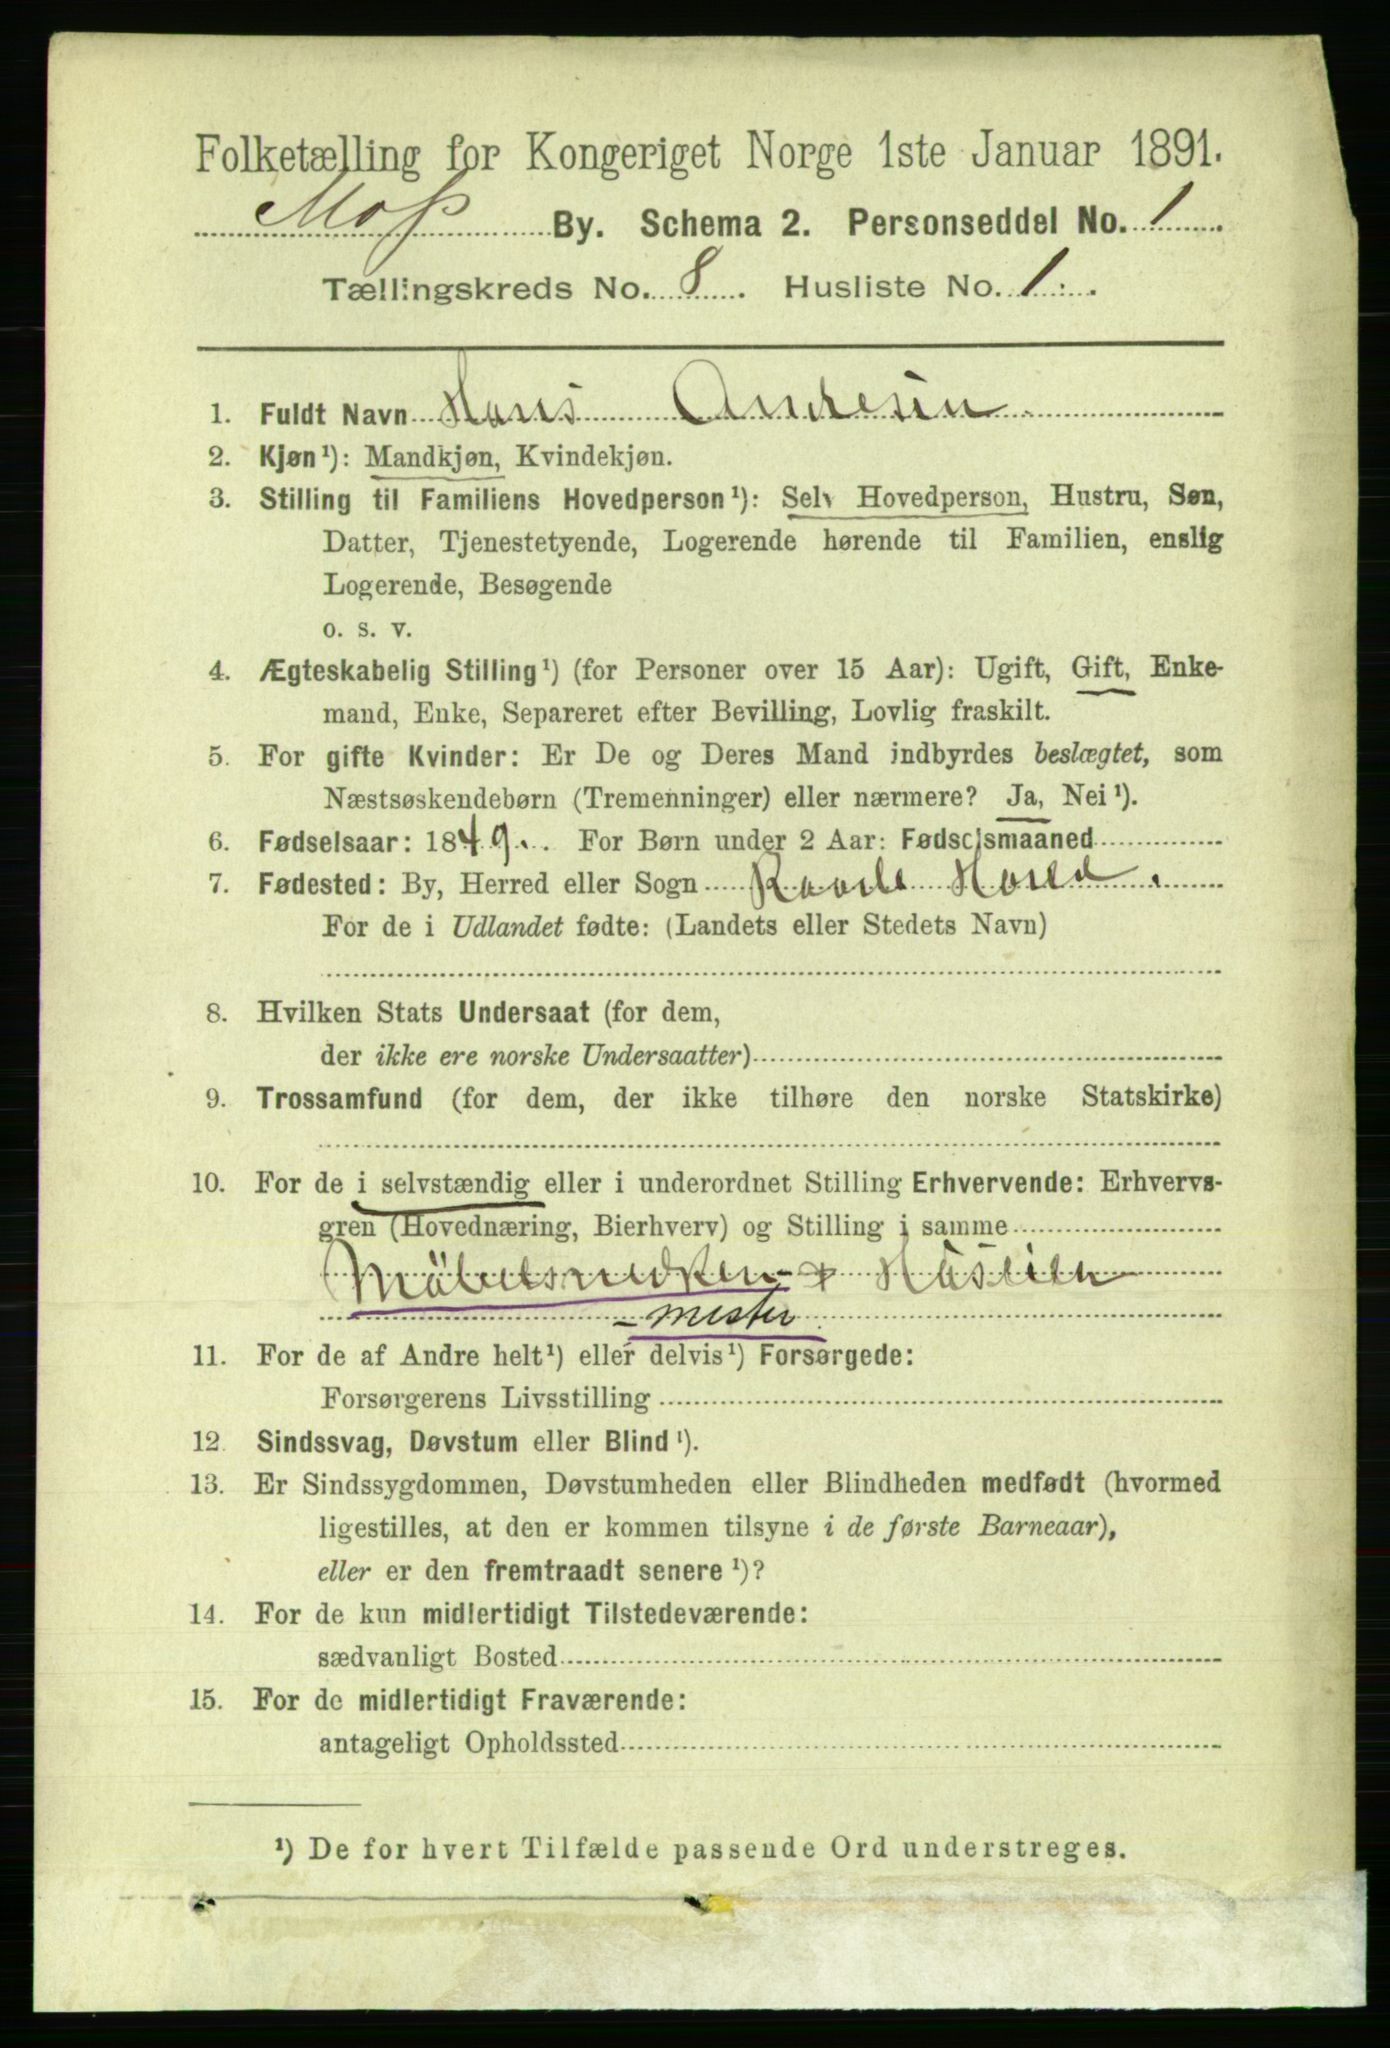 Folketælling for Kongeriget Norge 1ste Januar 1891.
Moss By. Schema 2. Personseddel No. 1
Tællingskreds No. 8. Husliste No. 1.
1. Fuldt Navn Hans Andresen
2. Kjøn¹): Mandkjøn, Kvindekjøn.
3. Stilling til Familiens Hovedperson¹): Selv Hovedperson, Hustru, Søn,
Datter, Tjenestetyende, Logerende hørende til Familien, enslig
Logerende, Besøgende
o. s. v.
4. Ægteskabelig Stilling¹) (for Personer over 15 Aar): Ugift, Gift, Enke-
mand, Enke, Separeret efter Bevilling, Lovlig fraskilt.
5. For gifte Kvinder: Er De og Deres Mand indbyrdes beslægtet, som
Næstsøskendebørn (Tremenninger) eller nærmere? Ja, Nei¹).
6. Fødselsaar: 1849. For Børn under 2 Aar: Fødselsmaaned
7. Fødested: By, Herred eller Sogn Raade
For de i Udlandet fødte: (Landets eller Stedets Navn)
8. Hvilken Stats Undersaat (for dem,
der ikke ere norske Undersaatter)
9. Trossamfund (for dem, der ikke tilhøre den norske Statskirke)
10. For de i selvstændig eller i underordnet Stilling Erhvervende: Erhvervs-
gren (Hovednæring, Bierhverv) og Stilling i samme
Möbelsnedker-
- mester
11. For de af Andre helt¹) eller delvis¹) Forsørgede:
Forsørgerens Livsstilling
12. Sindssvag, Døvstum eller Blind¹).
13. Er Sindssygdommen, Døvstumheden eller Blindheden medfødt (hvormed
ligestilles, at den er kommen tilsyne i de første Barneaar),
eller er den fremtraadt senere¹)?
14. For de kun midlertidigt Tilstedeværende:
sædvanligt Bosted
15. For de midlertidigt Fraværende:
antageligt Opholdssted
¹) De for hvert Tilfælde passende Ord understreges.